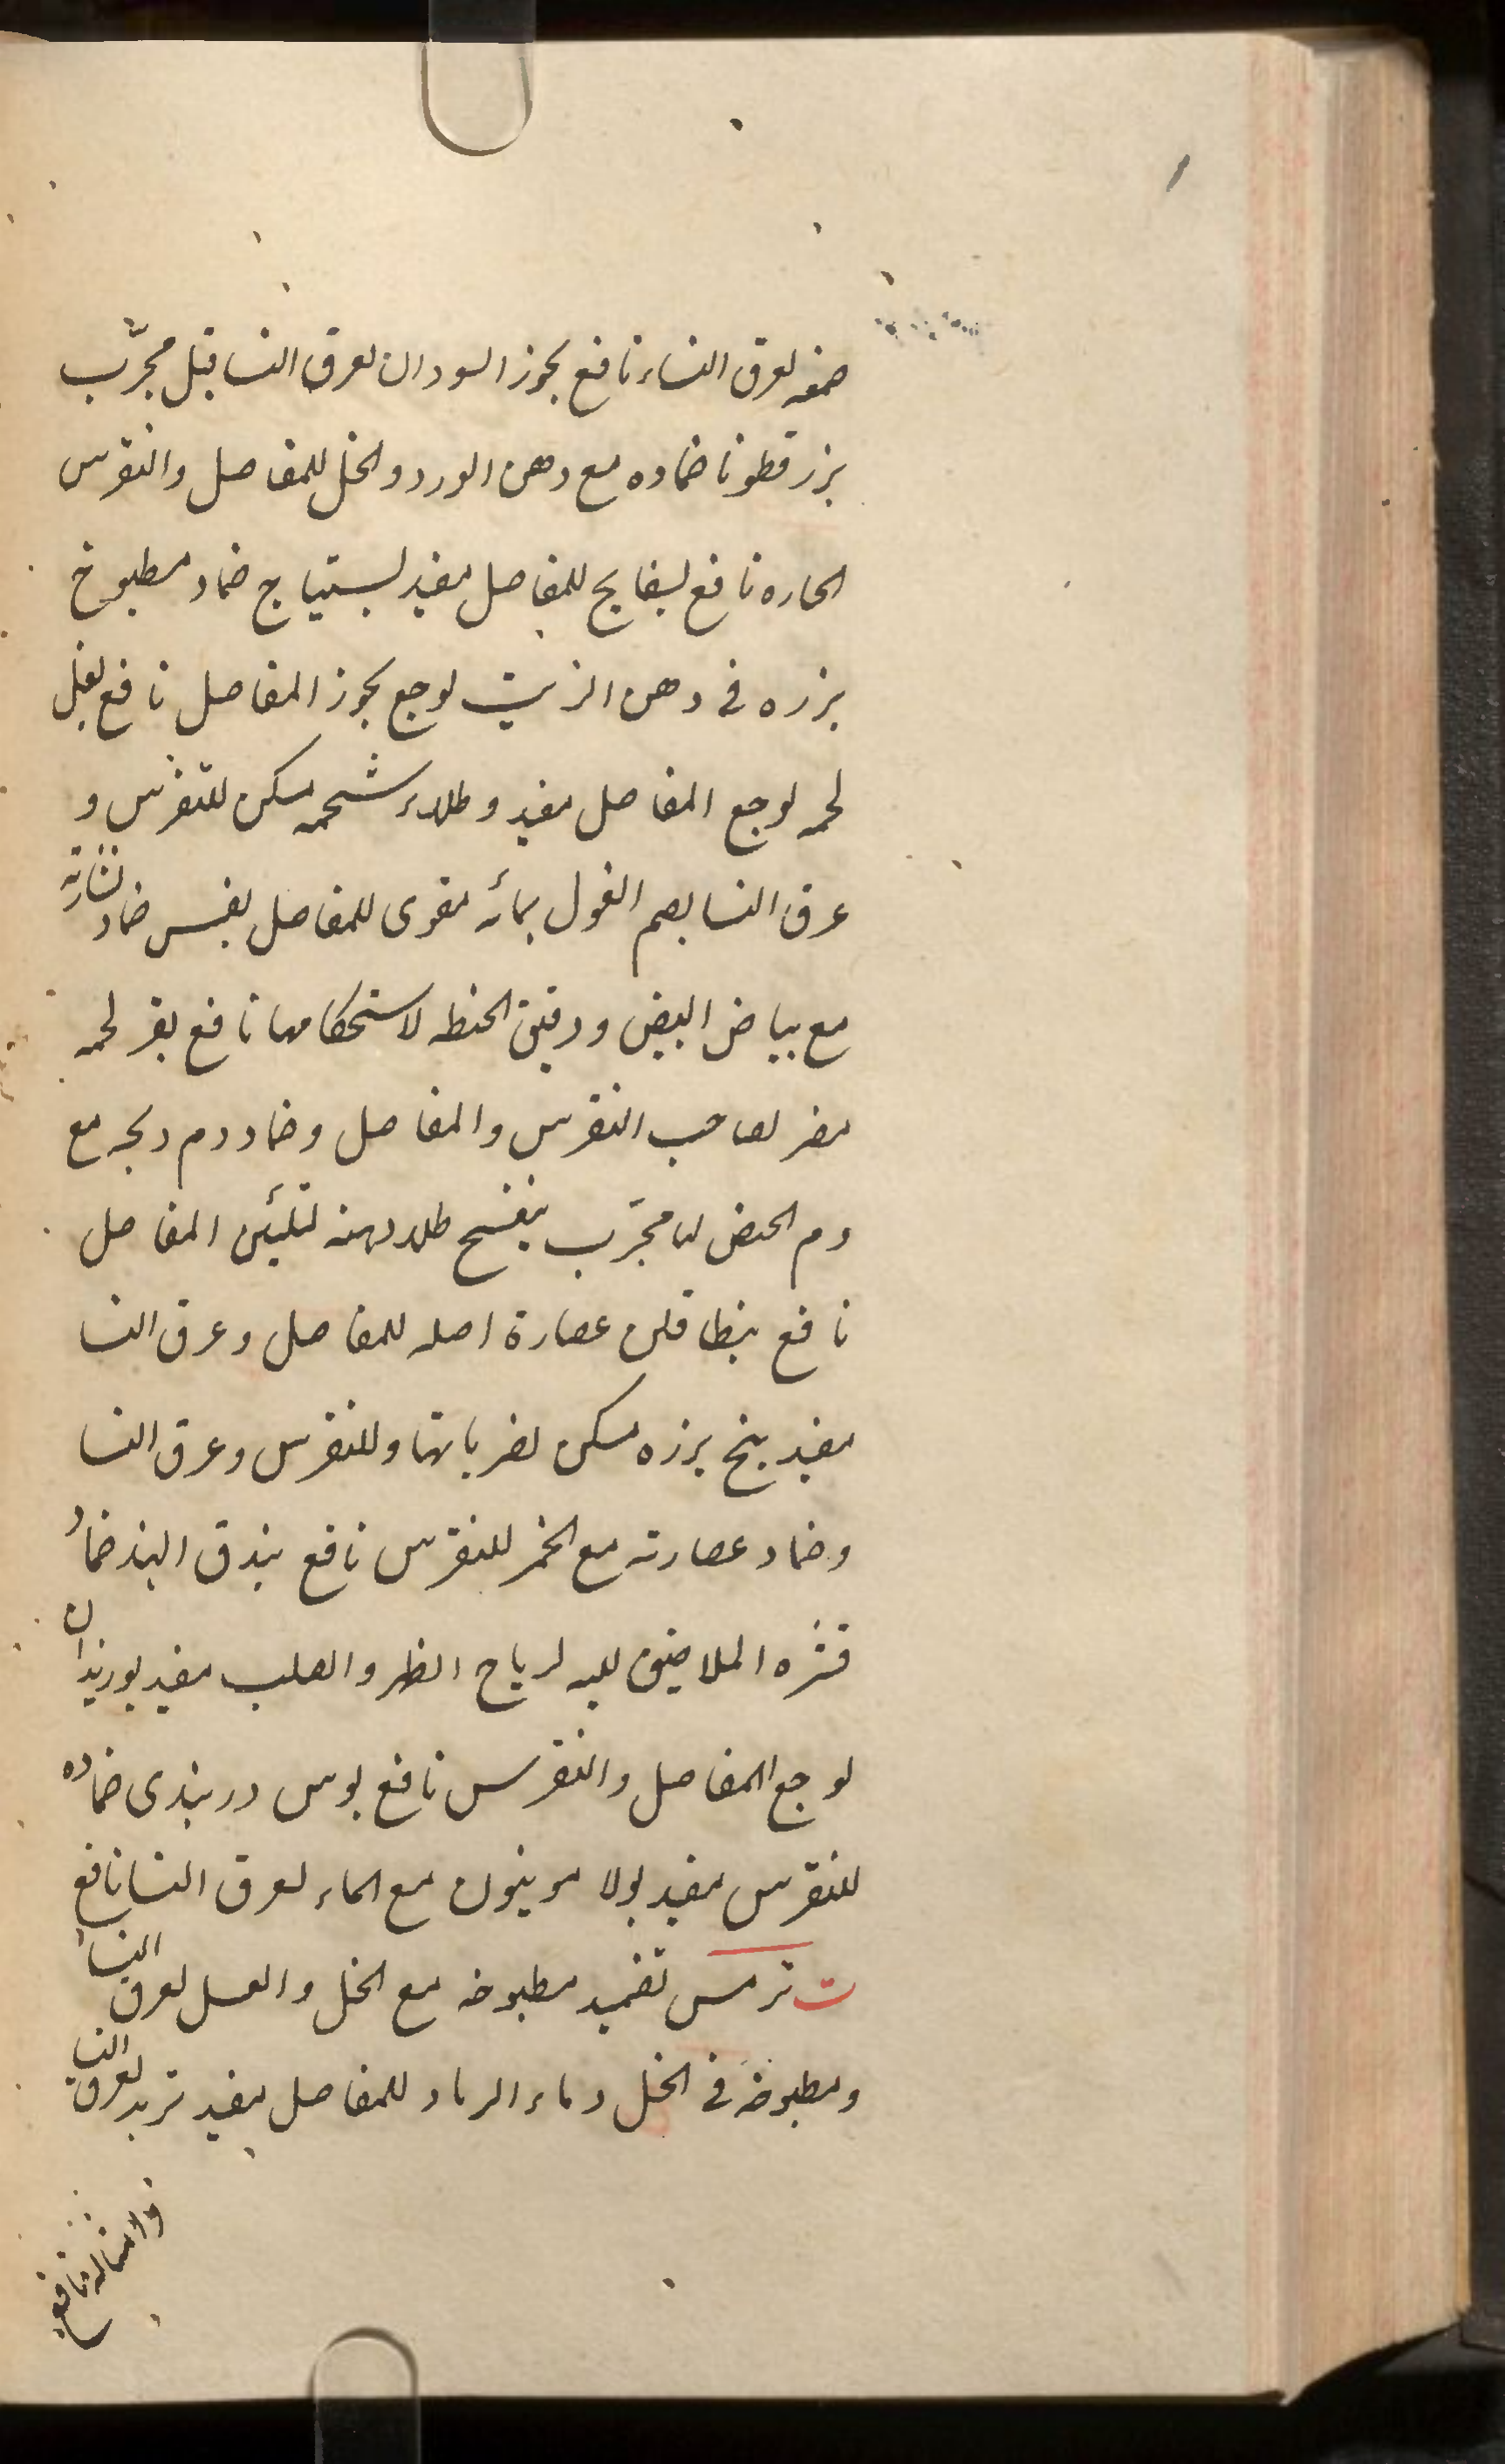 صمغه لعرق النساء نافع بخور السودان لعرق النسا قيل مجرّب
بزر قطونا ضماده مع دهن الورد والخل للمفاصل والنقرس
الحاره نافع بسفايج للمفاصل مفيد بستياج ضماد مطبوخ
بزره فى دهن الزيت لوجع المفاصل نافع بغل
لحمه لوجع المفاصل مفيد وطلاء شحمه مسكن للنقرس و
عرق النسا بصم الغول بمائه مقوى للمفاصل بقس ضماد نشارته
مع بياض البيض ودقيق الحنطه لاستحكامها نافع بقر لحمه
مضر لصاحب النقرس والمفاصل وضماد دم مع
دم الحيض لها مجرّب بنفسج طلا دهنه لتليّن المفاصل
نافع بنطافلن عصارة اصله للمفاصل وعرق النسا
مفيد بنج بزره مسكن لضرباتها وللنقرس وعرق النسا
وضماد عصارته مع الخمر للنقرس نافع بندق الهند ضماد
قشره الملاصق للبه لرياح الظهر والصلب مفيد بوزيدان
لوجع المفاصل والنقرس نافع بوس دربندى ضماده
للنقرس مفيد بولامونيون مع الماء لعرق النسا نافع
ت ترمس تضميد مطبوخه مع الخل والعسل لعرق النساء
ومطبوخه فى الخل وماء الرماد للمفاصل مفيد تربد لعرق النسا
وامثاله نافع